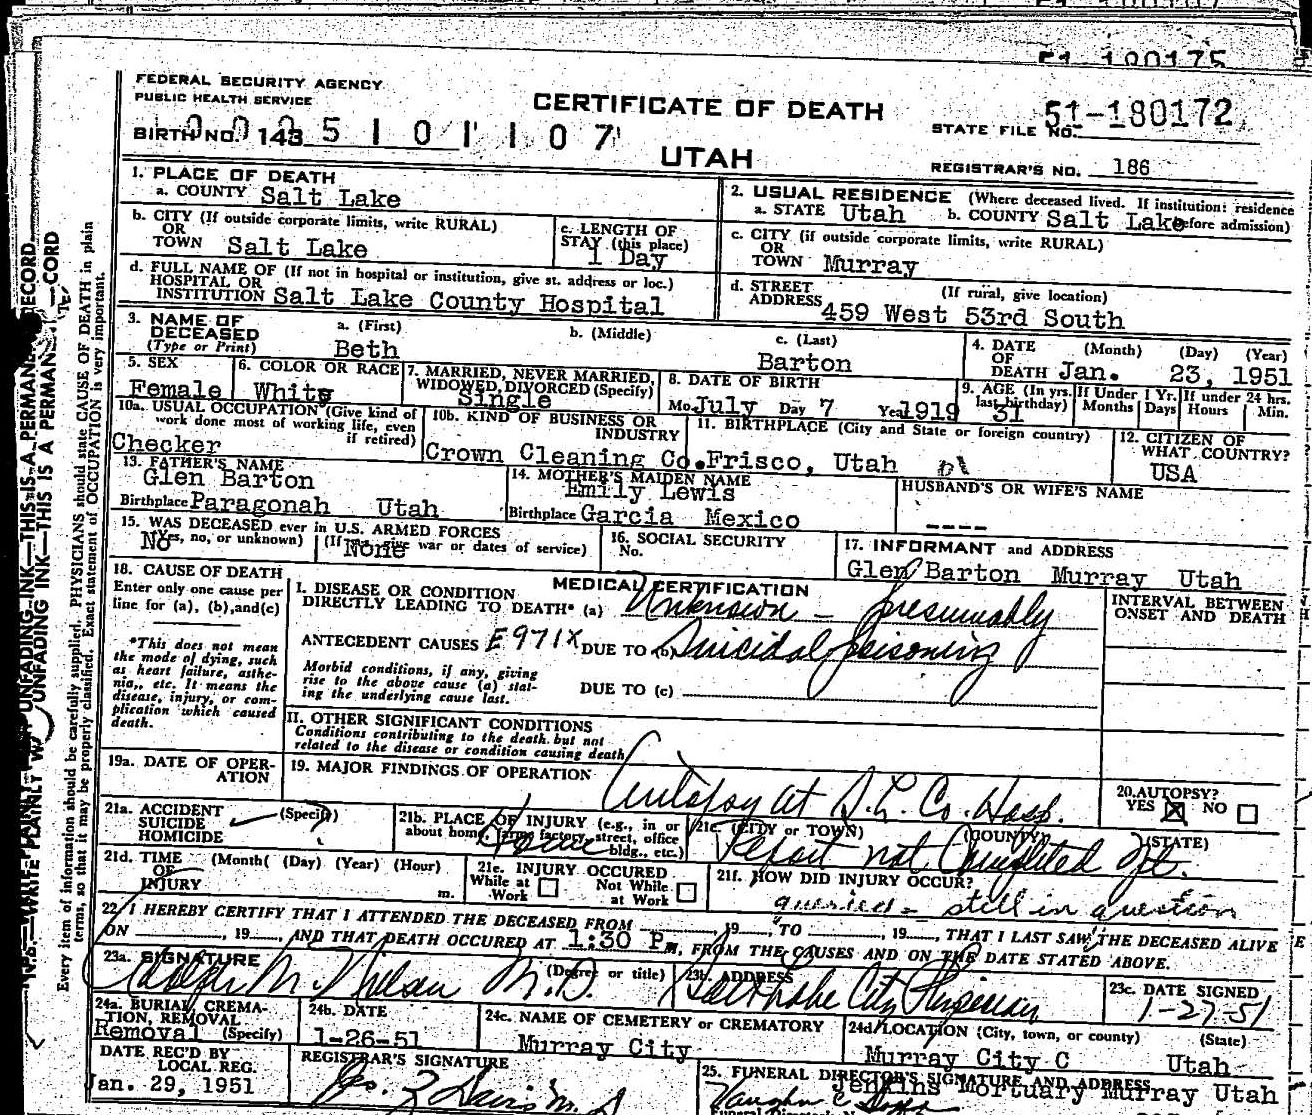 51-180175
FEDERAL SECURITY AGENCY
PUBLIC HEALTH SERVICE
CERTIFICATE OF DEATH
51-180172
STATE FILE NO.
BIRTH NO. 143
5 1 0 1 1 0 7
UTAH
REGISTRAR'S NO. 186
1. PLACE OF DEATH
a. COUNTY Salt Lake
2. USUAL RESIDENCE (Where deceased lived. If institution: residence before admission)
a. STATE Utah b. COUNTY Salt Lake
b. CITY (If outside corporate limits, write RURAL)
OR
TOWN Salt Lake
c. LENGTH OF
STAY (this place)
1 Day
c. CITY (if outside corporate limits, write RURAL)
OR
TOWN Murray
d. FULL NAME OF (If not in hospital or institution, give st. address or loc.)
HOSPITAL OR
INSTITUTION Salt Lake County Hospital
d. STREET (If rural, give location)
ADDRESS 459 West 53rd South
3. NAME OF
DECEASED
(Type or Print)
a. (First)
Beth
b. (Middle)
c. (Last)
Barton
4. DATE (Month) (Day) (Year)
OF
DEATH Jan. 23, 1951
5. SEX
Female
6. COLOR OR RACE
White
7. MARRIED, NEVER MARRIED,
WIDOWED, DIVORCED (Specify)
Single
8. DATE OF BIRTH
Mo. July Day 7 Year 1919
9. AGE (In yrs.
last birthday)
31
If Under 1 Yr.
Months Days
If under 24 hrs.
Hours Min.
10a. USUAL OCCUPATION (Give kind of
work done most of working life, even
if retired)
Checker
10b. KIND OF BUSINESS OR
INDUSTRY
Crown Cleaning Co.
11. BIRTHPLACE (City and State or foreign country)
Frisco, Utah
12. CITIZEN OF
WHAT COUNTRY?
USA
13. FATHER'S NAME
Glen Barton
Birthplace Paragonah Utah
14. MOTHER'S MAIDEN NAME
Emily Lewis
Birthplace Garcia Mexico
HUSBAND'S OR WIFE'S NAME
----
15. WAS DECEASED ever in U.S. ARMED FORCES
(Yes, no, or unknown) (If yes, give war or dates of service)
No None
16. SOCIAL SECURITY
No.
17. INFORMANT and ADDRESS
Glen Barton Murray Utah
18. CAUSE OF DEATH
Enter only one cause per
line for (a), (b), and (c)
*This does not mean
the mode of dying, such
as heart failure, asthe-
nia,, etc. It means the
disease, injury, or com-
plication which caused
death.
MEDICAL CERTIFICATION
I. DISEASE OR CONDITION
DIRECTLY LEADING TO DEATH* (a) Unknown - presumably
ANTECEDENT CAUSES E971X DUE TO (b) Suicidal poisoning
Morbid conditions, if any, giving
rise to the above cause (a) stat-
ing the underlying cause last.
DUE TO (c)
INTERVAL BETWEEN
ONSET AND DEATH
II. OTHER SIGNIFICANT CONDITIONS
Conditions contributing to the death but not
related to the disease or condition causing death
19a. DATE OF OPER-
ATION
19. MAJOR FINDINGS OF OPERATION
Autopsy at S. L. Co. Hosp.
20. AUTOPSY?
YES NO
21a. ACCIDENT
SUICIDE
HOMICIDE
(Specify)
?
21b. PLACE OF INJURY (e.g., in or
about home, farm, factory, street, office
bldg., etc.)
Home
21c. (CITY or TOWN) (COUNTY) (STATE)
Report not Completed Yet.
21d. TIME (Month) (Day) (Year) (Hour)
OF
INJURY m.
21e. INJURY OCCURED
While at Work Not While at Work
21f. HOW DID INJURY OCCUR?
queried - still in question
22. I HEREBY CERTIFY THAT I ATTENDED THE DECEASED FROM , 19 , TO , 19 , THAT I LAST SAW THE DECEASED ALIVE
ON , 19 , AND THAT DEATH OCCURED AT 1:30 P m, FROM THE CAUSES AND ON THE DATE STATED ABOVE.
23a. SIGNATURE (Degree or title)
M. Nielson M.D.
23b. ADDRESS
Salt Lake City Physician
23c. DATE SIGNED
1-27-51
24a. BURIAL, CREMA-
TION, REMOVAL
Removal (Specify)
24b. DATE
1-26-51
24c. NAME OF CEMETERY or CREMATORY
Murray City
24d. LOCATION (City, town, or county) (State)
Murray City C Utah
DATE REC'D BY
LOCAL REG.
Jan. 29, 1951
REGISTRAR'S SIGNATURE
25. FUNERAL DIRECTOR'S SIGNATURE AND ADDRESS
Jenkins Mortuary Murray Utah
N.B.—WRITE PLAINLY WITH UNFADING INK—THIS IS A PERMANENT RECORD
Every item of information should be carefully supplied. PHYSICIANS should state CAUSE OF DEATH in plain
terms, so that it may be properly classified. Exact statement of OCCUPATION is very important.